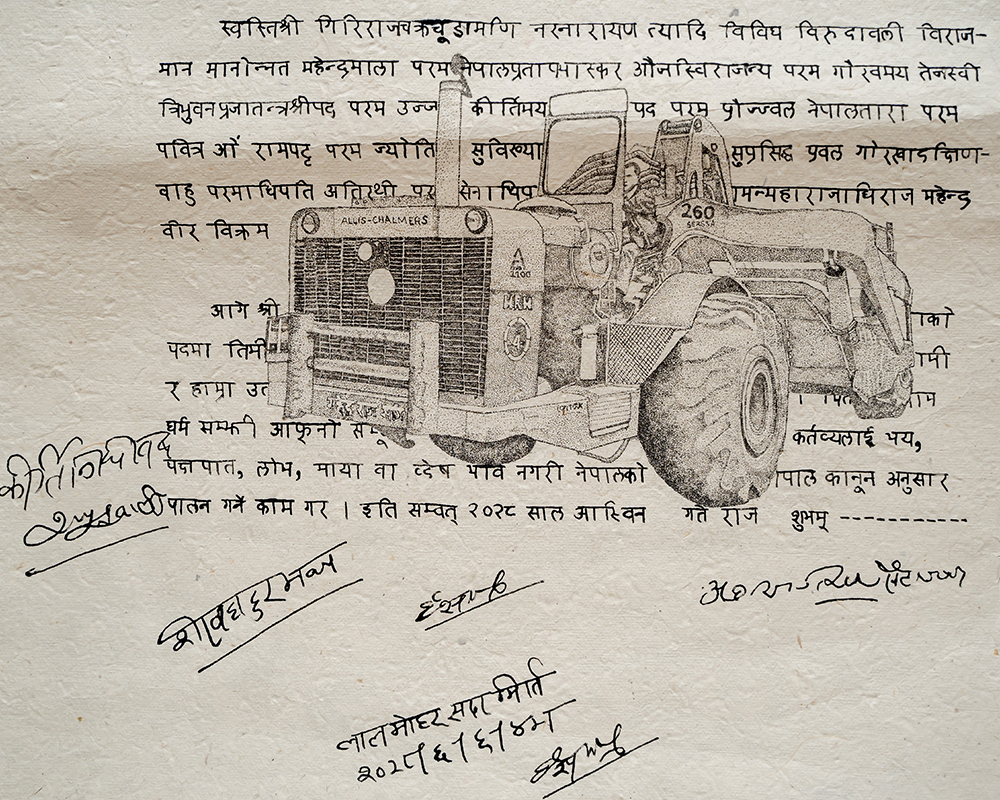 स्वस्तिश्री गिरिराजचक्रचूडामणि नरनारायण त्यादि विविध विरुदावली विराज-
मान मानोन्नत महेन्द्रमाला परम नेपालप्रतापभास्कर ओजस्विराजन्य परम गौरवमय तेजस्वी
त्रिभुवनप्रजातन्त्रश्रीपद परम उज्ज कीर्तिमय पद परम प्रोज्ज्वल नेपालतारा परम
पवित्र ओं रामपट्ट परम ज्योति सुविख्या सुप्रसिद्ध प्रवल गोरखादक्षिण-
वाहु परमाधिपति अतिरथी पर सेनाधिप मन्महाराजाधिराज महेन्द्र
वीर विक्रम
ALLIS-CHALMERS
260
आगे श्री ाको
पदमा तिमी ामी
र हाम्रा उत
धर्म सम्झी आफ्नो कर्तव्यलाई भय,
पक्षपात, लोभ, माया वा द्वेष भाव नगरी नेपालको पाल कानून अनुसार
पालन गर्ने काम गर । इति सम्वत् २०२८ साल आस्विन गते रोज शुभम् -----------
कीर्तिनिधि विष्ट
लालमोहर सदर मिति
२०२८।६।६।४म